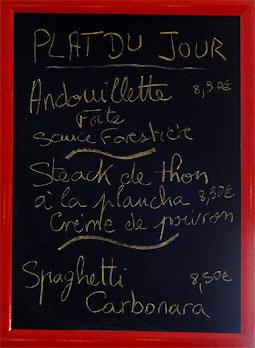 PLAT DU JOUR
Andouillette 8,50€
Frite
Sauce Forestière
Steack de thon
à la plancha 8,50€
Crème de poivron
Spaghetti 8,50€
Carbonara